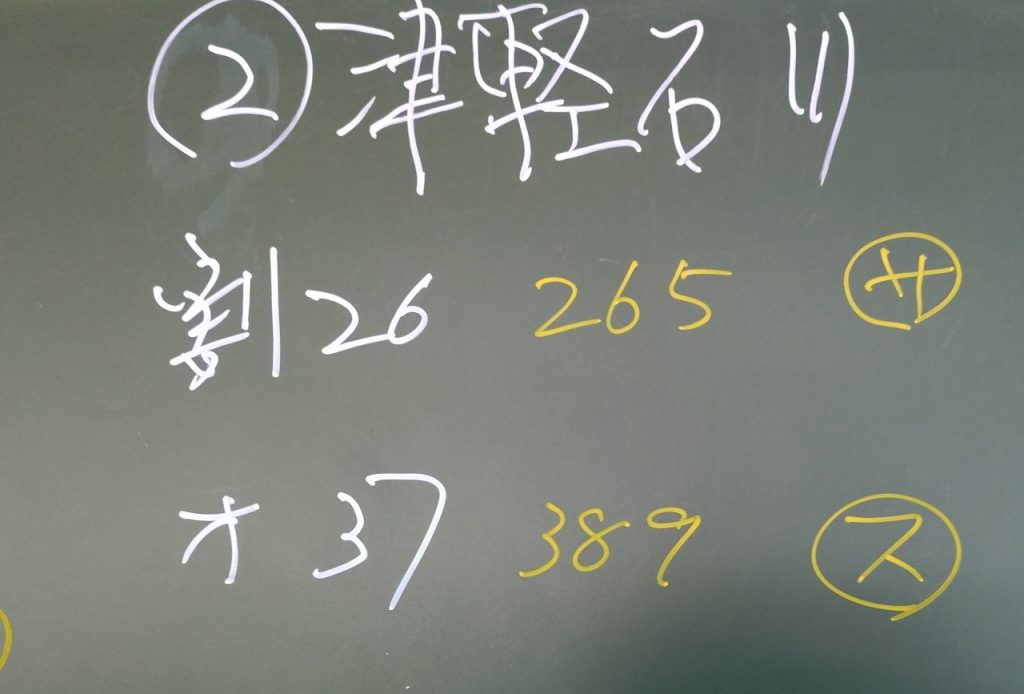 ② 津軽石川
割 26 265 ㋚
オ 37 389 ㋜